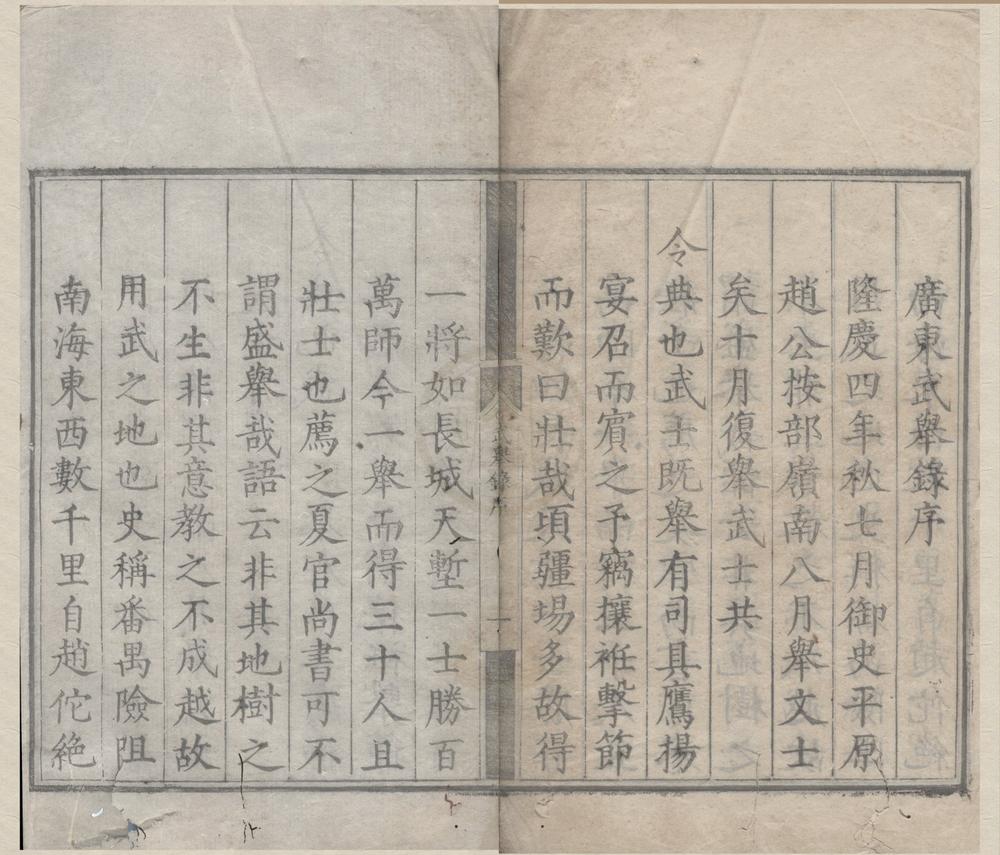 廣東武舉錄序
隆慶四年秋七月御史平原
趙公按部嶺南八月舉文士
矣十月復舉武士共
令典也武士既舉有司具鷹揚
宴召而賓之予竊攘袵擊節
而歎曰壯哉頃疆場多故得
武舉錄序
一
一將如長城天塹一士勝百
萬師今一舉而得三十人且
壯士也薦之夏官尚書可不
謂盛舉哉語云非其地樹之
不生非其意教之不成越故
用武之地也史稱番禺險阻
南海東西數千里自趙佗絕